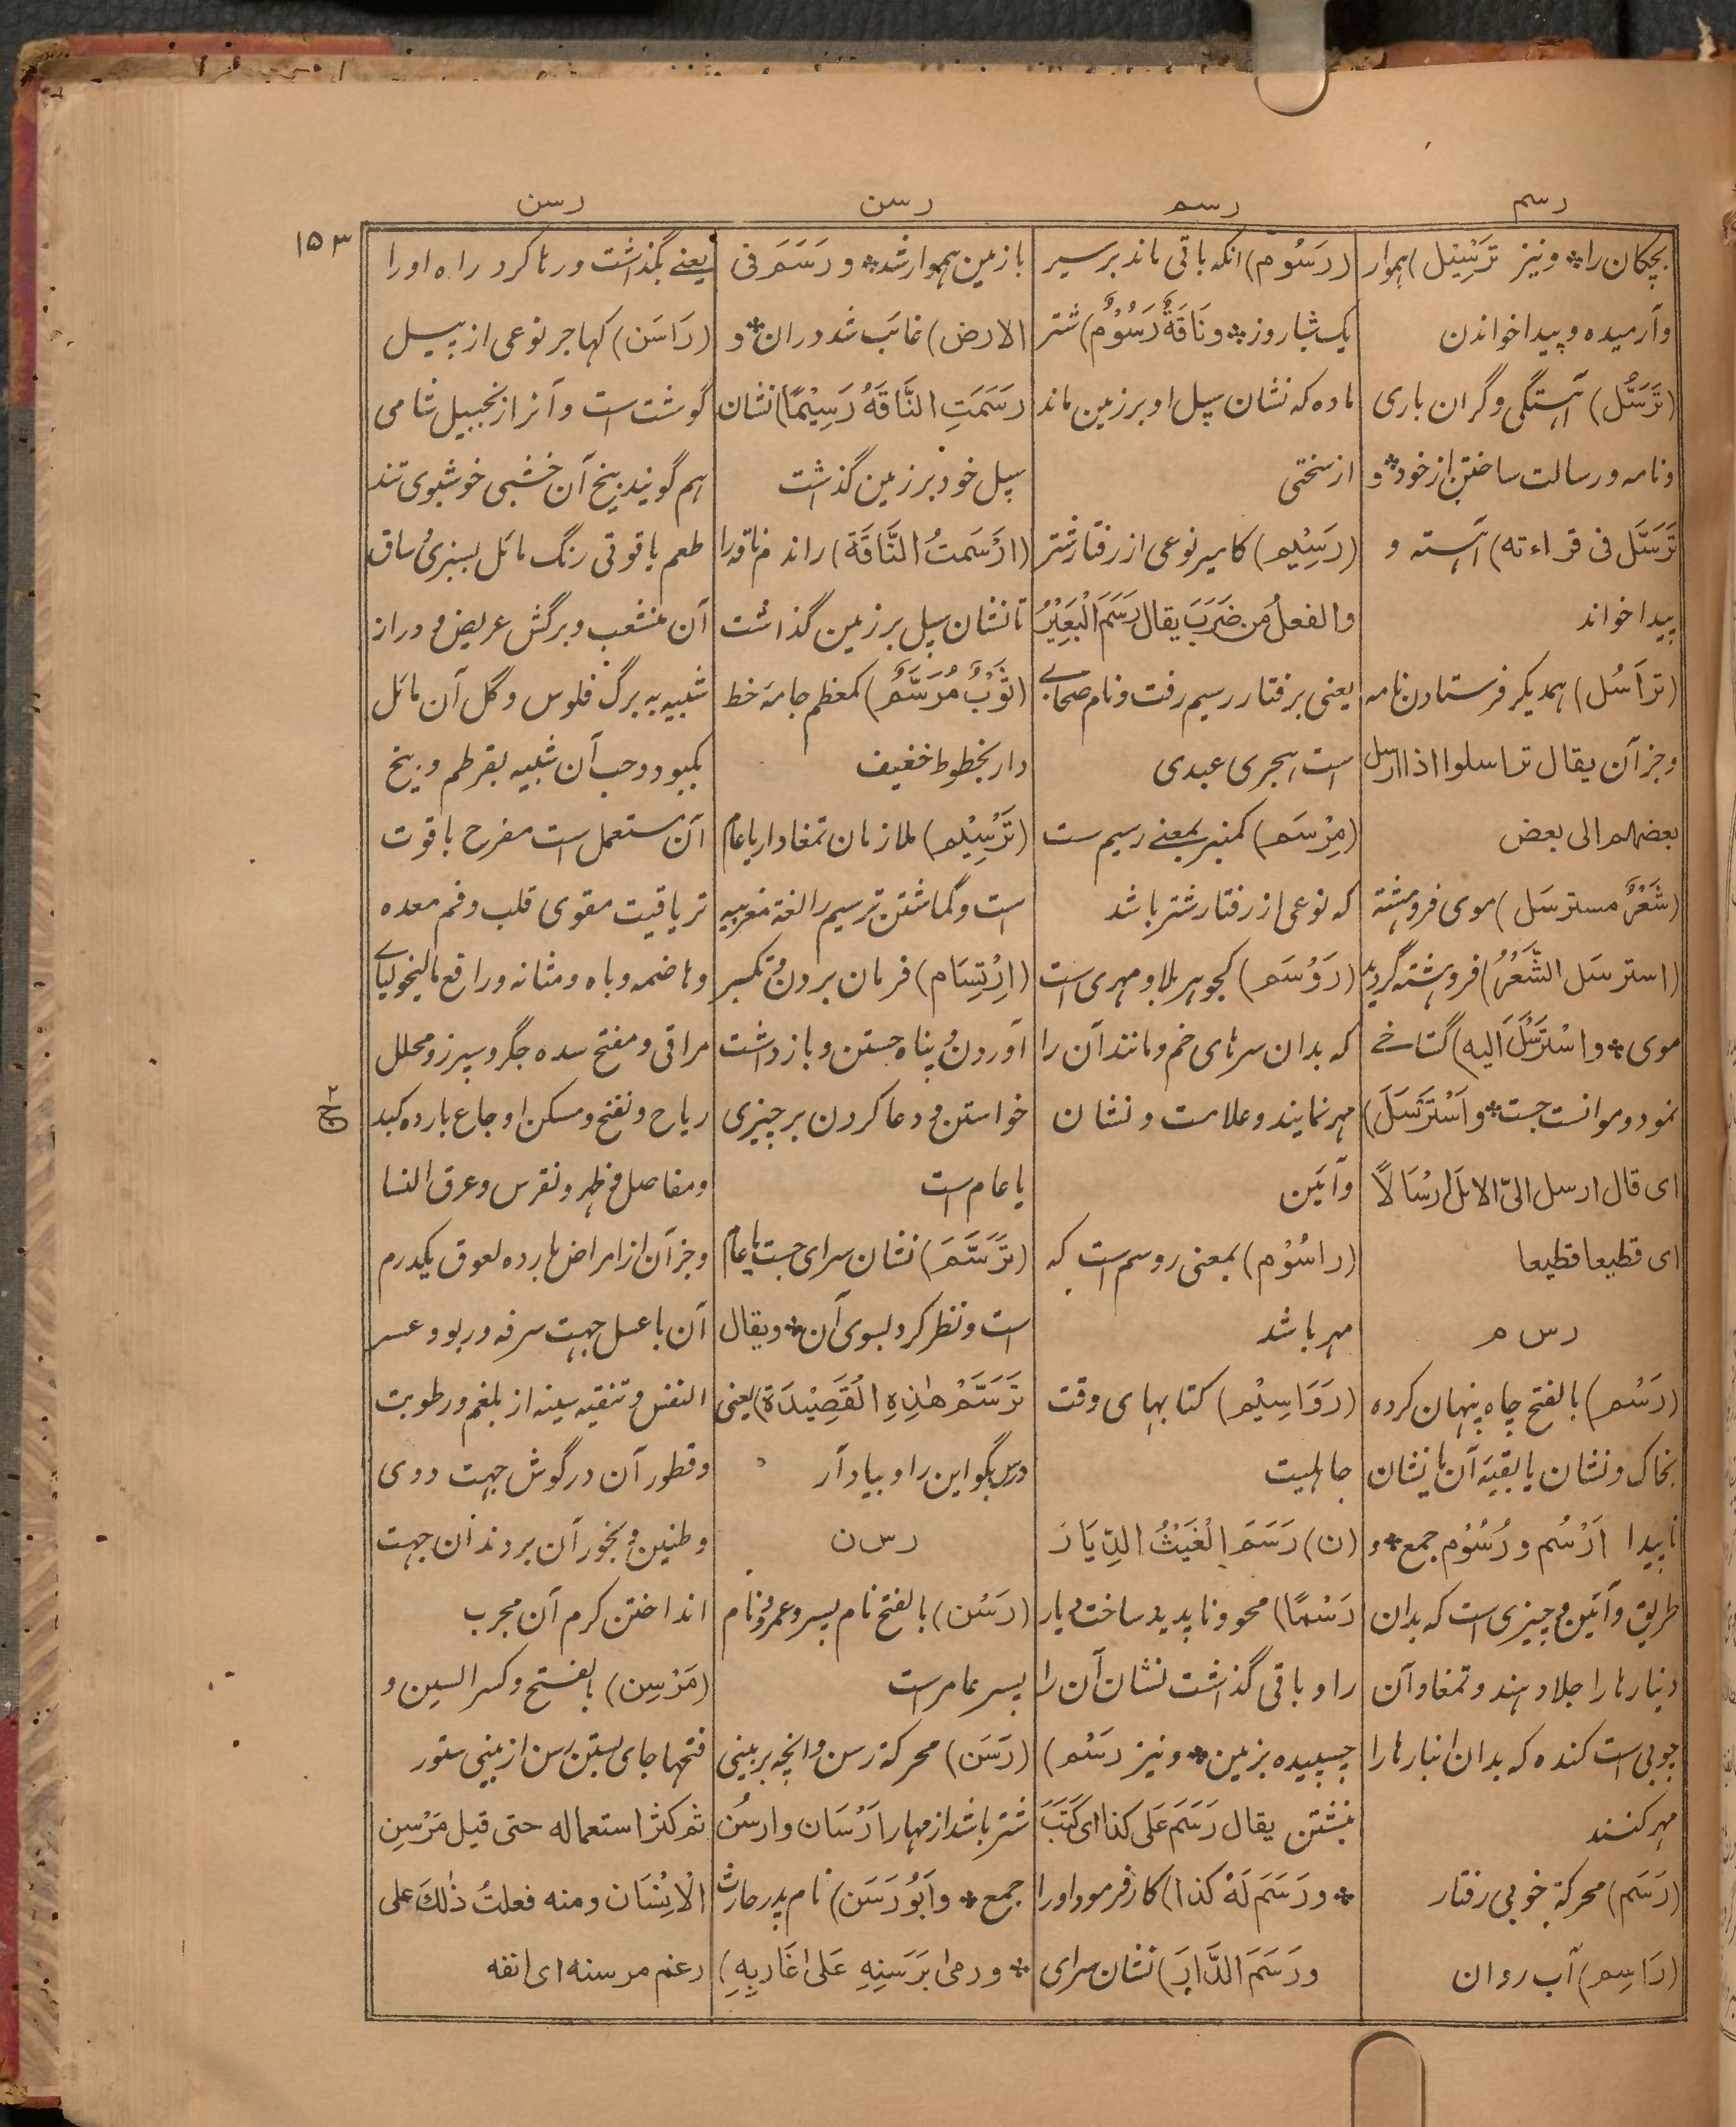 رسم
رسم
رسن
رسن
۱۵۳
بچکان را * ونیز تَرْسِیْل) هموار
وآرمیده وپیدا خواندن
(تَرَسُّل) آهستگی وگران باری
ونامه ورسالت ساختن از خود * و
تَرَسَّلَ فی قراءته) آهسته و
پیدا خواند
(تَراسُل) همدیگر فرستادن نامه
وجز آن یقال تراسلوا اذا ارسل
بعضهم الی بعض
(شَعْرٌ مسترسَل) موی فروهشته
(استرسَل الشَّعْرُ) فروهشته گردید
موی * واسْتَرْسَلَ اِلیه) گستاخے
نمود وموانست جست * واَسْتَرْسَلَ)
ای قال ارسل الیّ الابلَ اَرْسَالاً
ای قطیعا قطیعا
ر س م
(رَسْم) بالفتح چاه پنهان کرده
بخاک ونشان یا بقیهٔ آن یا نشان
ناپیدا اَرْسُم و رُسُوْم جمع * و
طریق وآئین وچیزی است که بدان
دینارها را جلا دهند وتمغا وآن
چوبی است کنده که بدان انبارها را
مهر کنند
(رَسَم) محرکة خوبی رفتار
(رَاسِم) آب روان
(رَسُوْم) انکه باقی ماند بر سیر
یک شباروز * ونَاقَةٌ رَسُوْمٌ) شتر
ماده که نشان سپل او بر زمین ماند
از سختی
(رَسِیْم) کامیر نوعی از رفتار شتر
والفعلُ مَن ضَرَبَ یقال رَسَمَ الْبَعِیْرُ
یعنی برفتار رسیم رفت ونام صحابے
است هجری عبدی
(مِرْسَم) کمنبر بمعنے رسیم ست
که نوعی از رفتار شتر باشد
(رَوْسَم) کجوهر بلا ومهری است
که بدان سرهای خم ومانند آن را
مهر نمایند وعلامت ونشان
وآئین
(راسُوْم) بمعنی روسم است که
مهر باشد
(رَوَاسِیْم) کتابهای وقت
جاهلیت
(ن) رَسَمَ الْغَیْثُ الدِّیَارَ
رَسْمًا) محو وناپدید ساخت دیار
را وباقی گذاشت نشان آن را
چسپیده بزمین * ونیز رَسْم)
نبشتن یقال رَسَمَ عَلی کذا ای کَتَبَ
* ورَسَمَ لَهٗ کذا) کار فرمود او را
ورَسَمَ الدَّارَ) نشان سرای
با زمین هموار شد * ورَسَمَ فی
الارض) غائب شد دران * و
رَسَمَتِ النَّاقَةُ رَسِیْمًا) نشان
سپل خود بر زمین گذاشت
(ارْسَمتُ النَّاقَةَ) راندم ناقه را
تا نشان سپل بر زمین گذاشت
(ثَوْبٌ مُرَسَّمٌ) کمعظم جامهٔ خط
دار بخطوط خفیف
(تَرْسِیْم) ملازمان تمغادار یا عام
است وگماشتن ترسیم را لغة مغربیه
(اِرْتِسَام) فرمان بردن وتکبیر
آوردن وپناه جستن وبازداشت
خواستن ودعا کردن بر چیزی
یا عام است
(تَرَسَّمَ) نشان سرای جست یا عام
است ونظر کرد بسوی آن * ویقال
تَرَسَّمْ هٰذِهِ الْقَصِیْدَةَ) یعنی
درس بگو این را وبیاد آر
ر س ن
(رَسْن) بالفتح نام پسر وعمرو نام
پسر عامر است
(رَسَن) محرکة رسن وانچه بر بینی
شتر باشد از مهار اَرْسَان وارسُن
جمع * واَبُوْرَسَن) نام پدر حارث
* ورمی بَرَسَنِهِ عَلٰی غَارِبِهِ)
یعنے بگذاشت ورها کرد راه او را
(رَاسَن) کهاجر نوعی از پیل
گوشت ست وآنرا زنجبیل شامی
هم گویند بیخ آن خشبی خوشبوی تند
طعم یاقوتی رنگ مائل بسبزی وساق
آن منشعب وبرگش عریض ودراز
شبیه به برگ فلوس وگل آن مائل
بکبود وحب آن شبیه بقرطم وبیخ
آن مستعمل است مفرح با قوت
تریاقیت مقوی قلب وفم معده
وهاضمه وباه ومثانه ورافع مالیخولیاے
مراقی ومفتح سده جگر وسپرز ومحلل
ریاح ونفخ ومسکن اوجاع بارده کبد
ومفاصل وظهر ونقرس وعرق النسا
وجز آن از امراض بارده لعوق یکدرم
آن با عسل جهت سرفه وربو وعسر
النفس وتنقیه سینه از بلغم ورطوبت
وقطور آن در گوش جهت دوی
وطنین وبخور آن بر دندان جهت
انداختن کرم آن مجرب
(مَرْسِن) بالفتح وکسر السین و
فتحها جای بستن رسن از بینی ستور
ثم کثر استعماله حتی قیل مَرْسِن
الْاِنْسَان ومنه فعلتُ ذٰلکَ علی
رغم مرسنه ای انفه